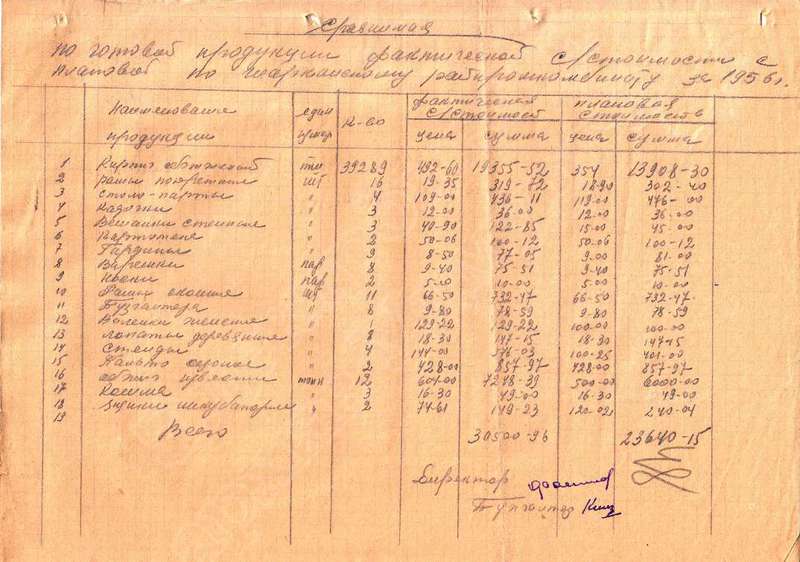 Сравнимая
по готовой продукции фактической с/стоимости с
плановой по Шарканскому райпромкомбинату за 1956 г.
Наименование продукции един измер К-во фактическая с/стоимость цена сумма плановая стоимость цена сумма
1 Кирпич обожженой тш 39289 492-60 19355-52 354 13908-30
2 рамы портретные шт 16 19-35 319-72 18-90 302-40
3 столо-парты " 4 109-00 436-11 119-00 476-00
4 Кадочки " 3 12-00 36-00 12-00 36-00
5 Вешалки стенные " 3 40-90 122-85 15-00 45-00
6 " 2 50-06 100-12 50-06 100-12
7 Гардины " 9 8-50 77-05 9-00 81-00
8 Варежки пар 8 9-40 75-51 9-40 75-51
9 Носки пар 2 5-00 10-00 5-00 10-00
10 Рамы оконные шт 11 66-50 732-47 66-50 732-47
11 " 8 9-80 78-59 9-80 78-59
12 " 1 129-22 129-22 100-00 100-00
13 лопаты деревянные " 8 18-30 147-15 18-30 147-15
14 Стенды " 4 144-00 576-03 100-25 401-00
15 Пальто " 2 428-00 857-97 428-00 857-97
16 обжиг извести тонн 12 604-00 7248-39 500-00 6000-00
17 Кошма " 3 16-30 49-00 16-30 49-00
18 инкубаторные " 2 74-61 149-23 120-02 240-04
19
Всего 30500-96 23640-15
Директор
Бухгалтер